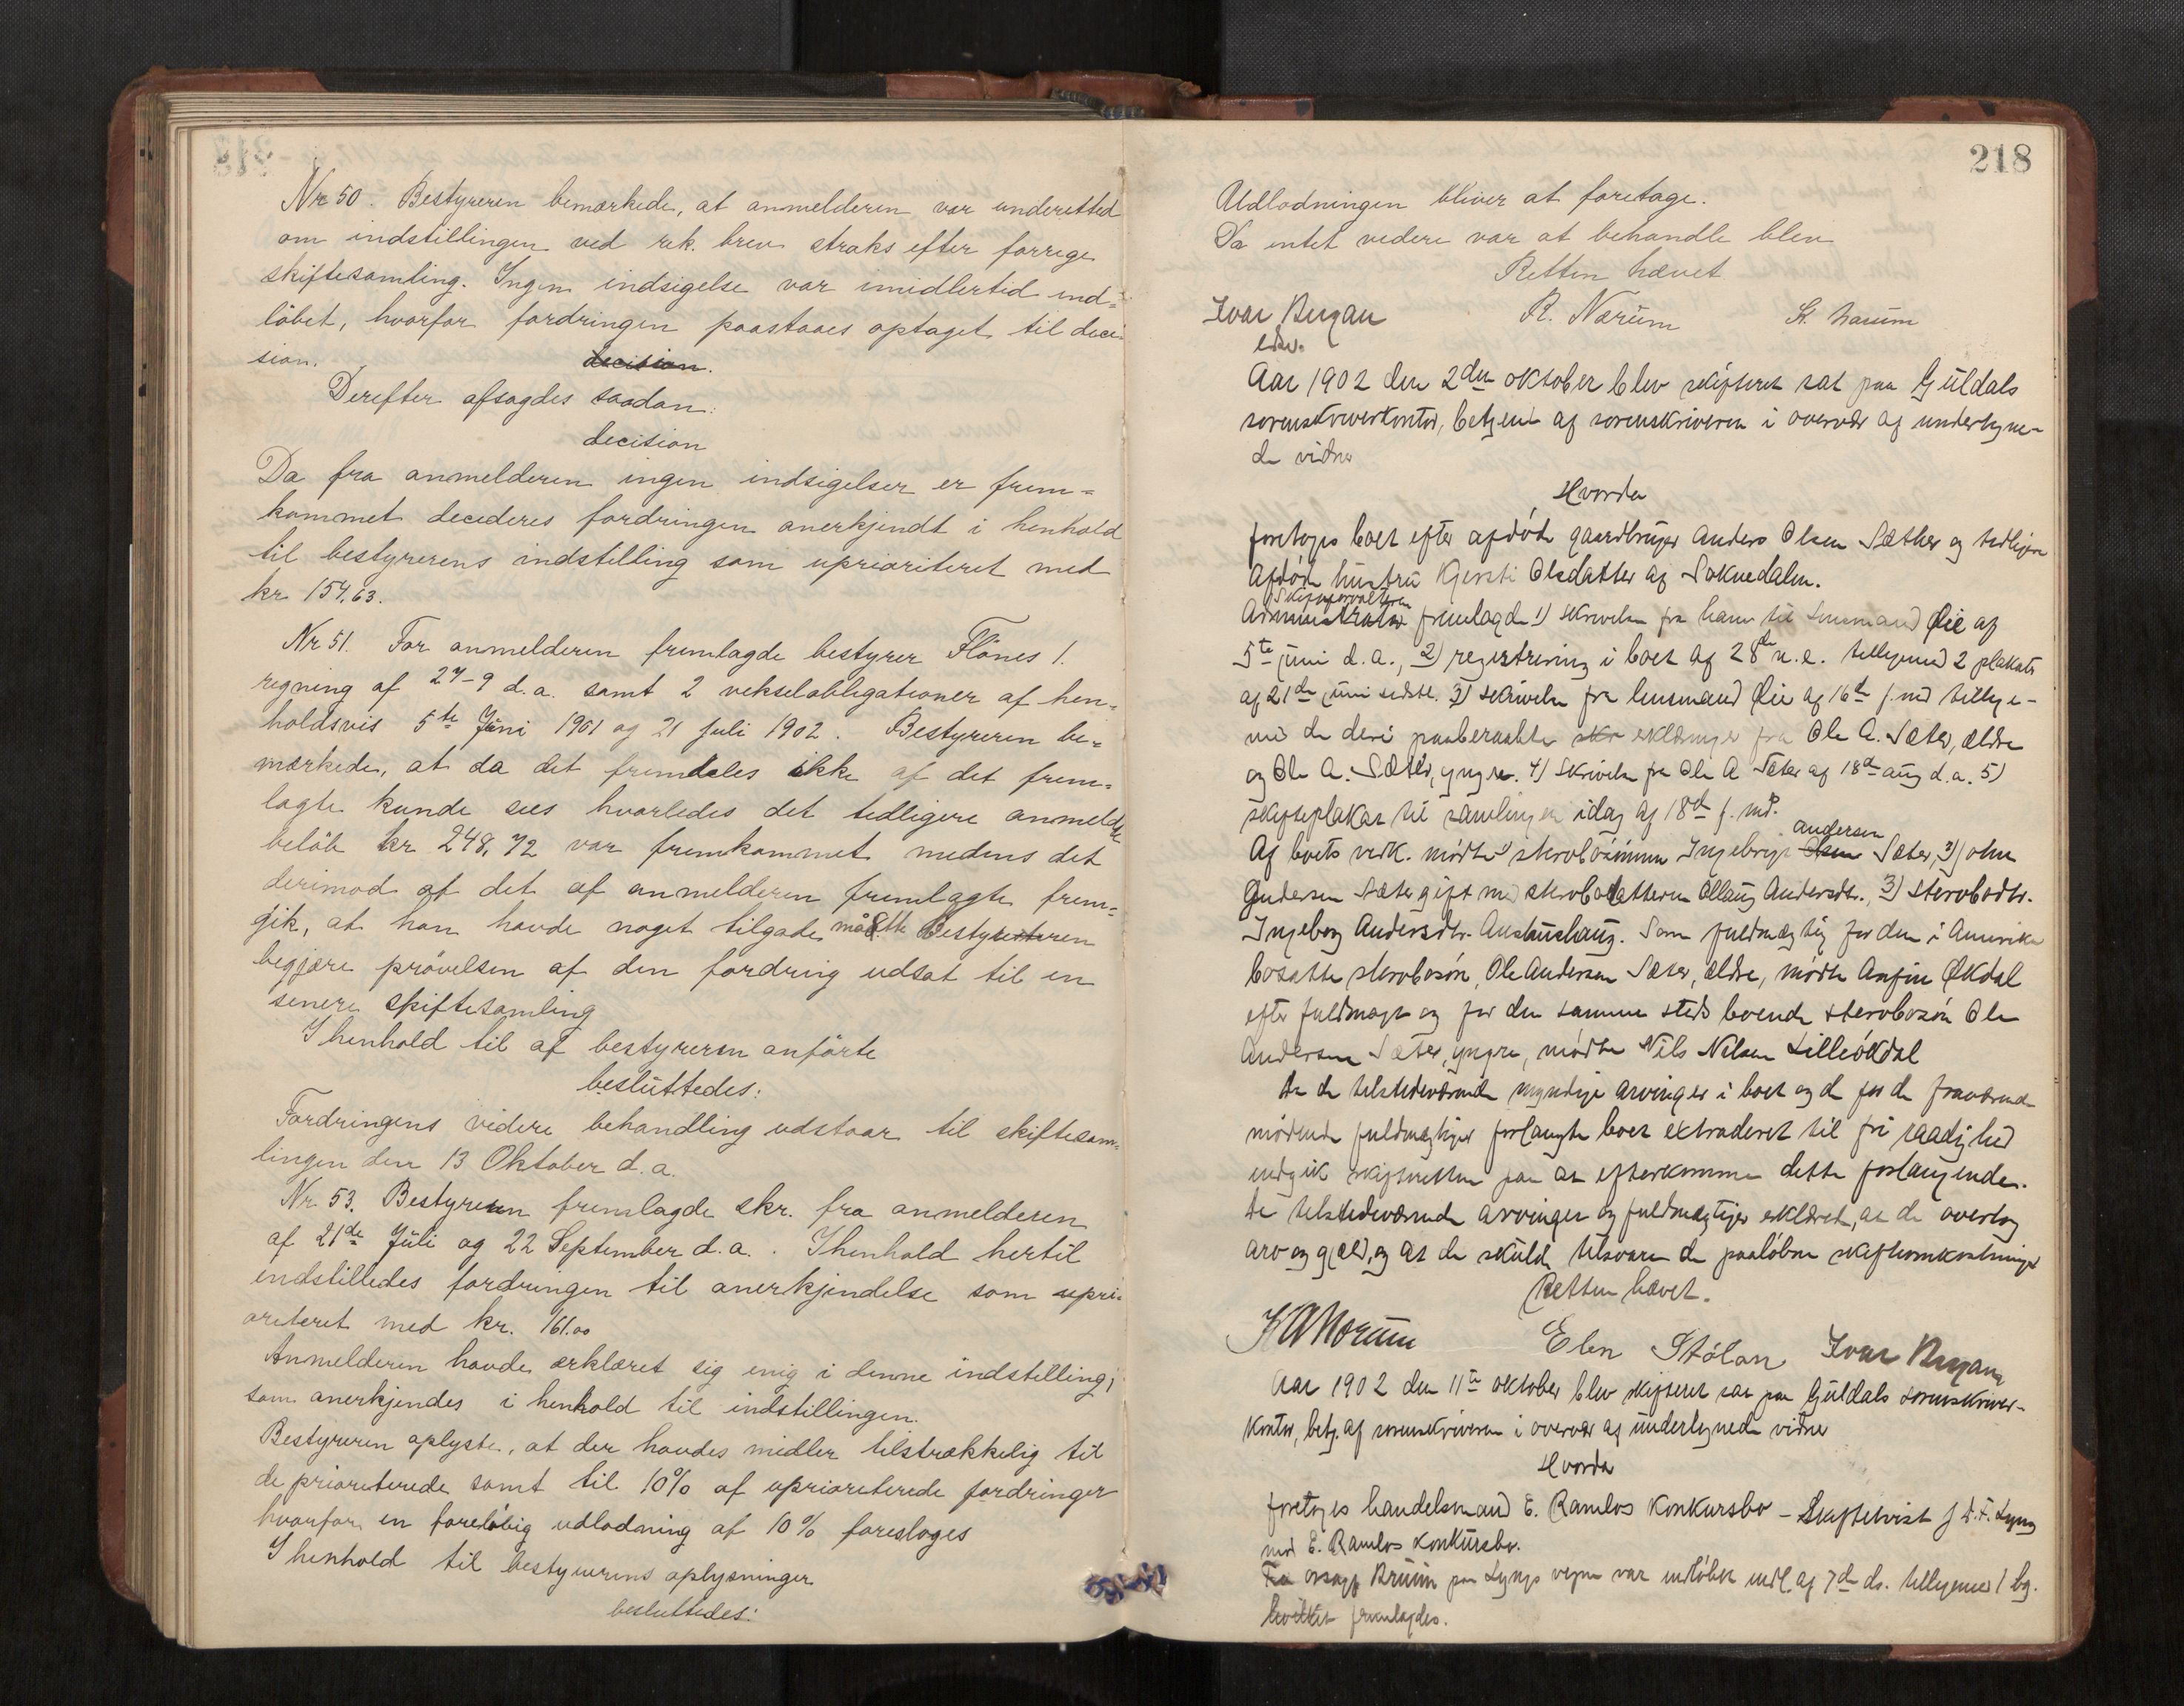 Nr 50. Bestyreren bemærkede, at anmelderen var underettet
om indstillingen ved rek. brev straks efter forrige
skiftesamling. Ingen indsigelse var imidlertid ind-
löbet, hvorfor fordringen paastaaes optaget til deci-
sion. decision.
Derefter afsagdes saadan:
decision
Da fra anmelderen ingen indsigelser er frem-
kommet decideres fordringen anerkjendt i henhold
til bestyrerens indstilling som uprioriteret med
kr. 154,63.
Nr 51. For anmelderen fremlagde bestyrer Flönes 1.
regning af 27-9 d.a. samt 2 vekselobligationer af hen-
holdsvis 5te Juni 1901 og 21 Juli 1902. Bestyreren be-
mærkede, at da det fremdeles ikke af det frem-
lagte kunde sees hvorledes det tidligere anmeldte
belöb kr 248,72 var fremkommet medens det
derimod af det af anmelderen fremlagte frem-
gik, at han havde noget tilgode, måtte Bestyreren
begjære prövelsen af den fordring udsat til en
senere skiftesamling
I henhold til af bestyreren anförte
besluttedes:
Fordringens videre behandling udstaar til skiftesam-
lingen den 13 Oktober d.a.
Nr. 53. Bestyreren fremlagde skr. fra anmelderen
af 21de Juli og 22 September d.a. I henhold hertil
indstilledes fordringen til anerkjendelse som upri-
oriteret med kr. 161.00
Anmelderen havde erklæret sig enig i denne indstilling,
som anerkjendes i henhold til indstillingen.
Bestyreren oplyste, at der havdes midler tilstrækkelig til
de prioriterede samt til 10% af uprioriterede fordringer
hvorfor en foreløbig udlodning af 10% foresloges
I henhold til bestyrerens oplysninger
besluttedes:
218
Udlodningen bliver at foretage.
Da intet videre var at behandle blev
Retten hævet
Ivar Bergan R. Nærum St. Narum
Aar 1902 den 2den oktober blev skifteret sat paa Guldals
sorenskriverkontor, betjent af sorenskriveren i overvær af undertegne-
de vidner
Hvorda
foretoges boet efter afdöde gaardbruger Anders Olsen Sæther og tidligere
afdöde hustru Kjersti Olsdatter af Soknedalen.
Skifteforvalteren
Administrator fremlagde 1) skrivelse fra ham til lensmand Øie af
5te juni d.a., 2) registrering i boet af 28de n.e. tilligemed 2 plakater
af 21de juni sidstl. 3) skrivelse fra lensmand Øie af 16de f. md tillige-
med de deri paaberaabte skr erklæringer fra Ole A. Sæter, ældre
og Ole A. Sæter, yngre. 4) Skrivelse fra Ole A Sæter af 18de aug d.a. 5)
skifteplakat til samlingen idag af 18de f. md.
Andersen
Af boets vedk. mödte 1) stervbosönnen Ingebrigt Olsen Sæter, 2) John
Gundersen Sæter gift med stervbodatteren Ollaug Andersdtr., 3) stervbodtr.
Ingeborg Andersdtr. Som fuldmægtig for den i Amerika
bosatte stervbosön, Ole Andersen Sæter, ældre, mödte Anfin Økdal
efter fuldmagt og for den samme steds boende stervbosön Ole
Andersen Sæter, yngre, mödte Nils Nilsen Lilleökdal
Da de tilstedeværende myndige arvinger i boet og de for de fraværende
mödende fuldmægtiger forlangte boet extraderet til fri raadighed
indgik skifteretten paa at efterkomme dette forlangende.
De tilstedeværende arvinger og fuldmægtiger erklæret, at de overtog
arv og gjæld, og at de skulde tilsvare de paalöbne skifteomkostninger
Retten hævet.
K A Morum Elen Stölan Ivar Bergan
Aar 1902 den 11te oktober blev skifteret sat paa Guldals sorenskriver-
kontor, betj. af sorenskriveren i overvær af undertegnede vidner
Hvorda
foretoges handelsmand E. Ramlos konkursbo – Skiftetvist
mod E. Ramlos konkursbo.
Fra orsagf Bruun paa Lyngs vegne var indlöbet indl. af 7de ds. tilligemed 1 bg.
hvilket fremlagdes.